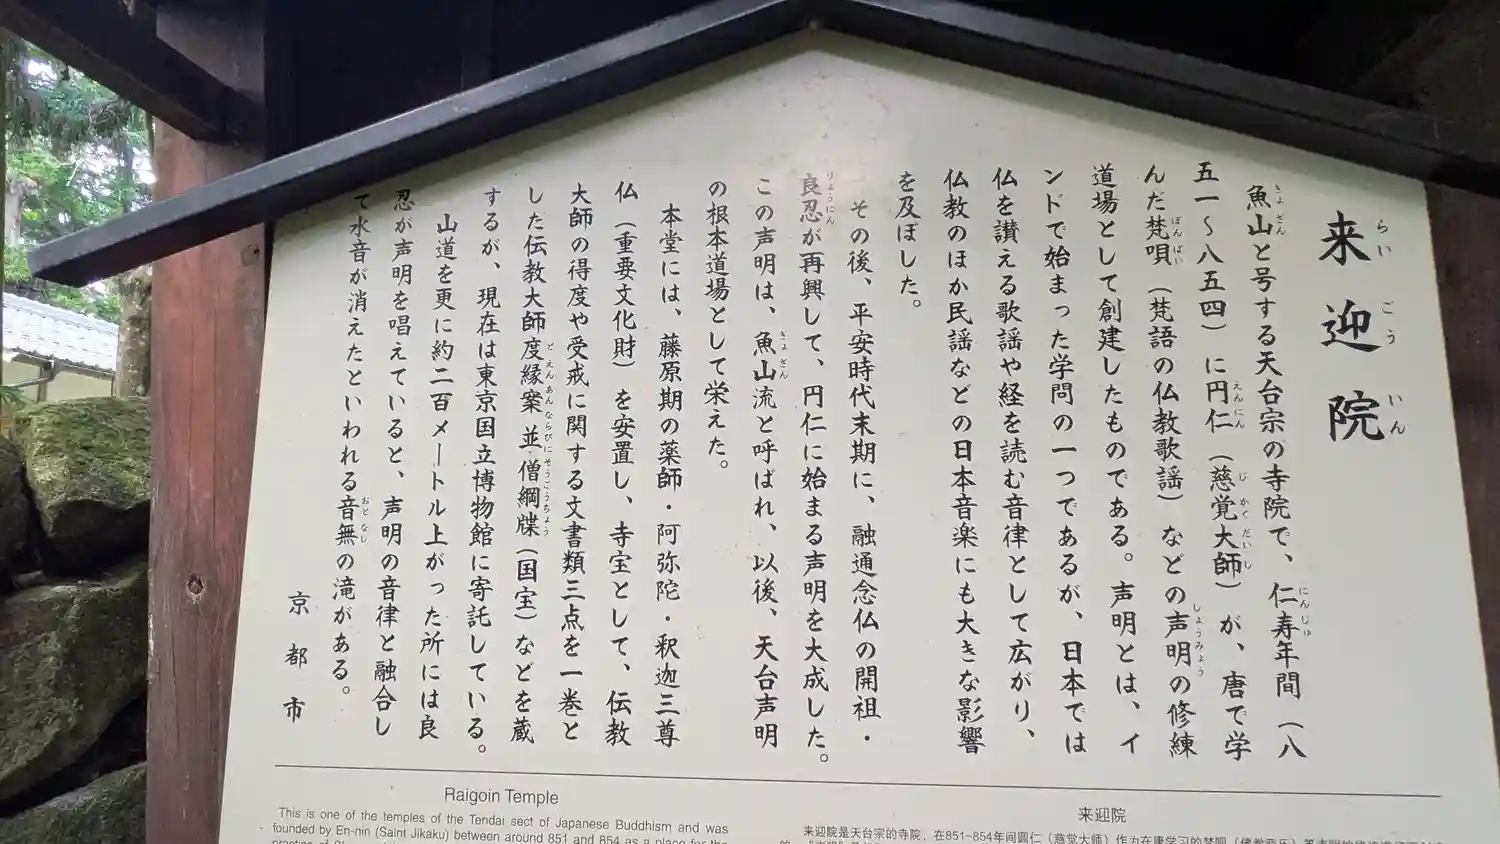 来迎院
らいごういん
魚山と号する天台宗の寺院で、仁寿年間（八
五一～八五四）に円仁（慈覚大師）が、唐で学
んだ梵唄（梵語の仏教歌謡）などの声明の修練
道場として創建したものである。声明とは、イ
ンドで始まった学問の一つであるが、日本では
仏を讃える歌謡や経を読む音律として広がり、
仏教のほか民謡などの日本音楽にも大きな影響
を及ぼした。
その後、平安時代末期に、融通念仏の開祖・
良忍が再興して、円仁に始まる声明を大成した。
この声明は、魚山流と呼ばれ、以後、天台声明
の根本道場として栄えた。
本堂には、藤原期の薬師・阿弥陀・釈迦三尊
仏（重要文化財）を安置し、寺宝として、伝教
大師の得度や受戒に関する文書類三点を一巻と
した伝教大師度縁案並僧綱牒（国宝）などを蔵
するが、現在は東京国立博物館に寄託している。
山道を更に約二百メートル上がった所には良
忍が声明を唱えていると、声明の音律と融合し
て水音が消えたといわれる音無の滝がある。
京都市
Raigoin Temple
This is one of the temples of the Tendai sect of Japanese Buddhism and was
founded by En-nin (Saint Jikaku) between around 851 and 854 as a place for the
来迎院
来迎院是天台宗的寺院，在851~854年间圆仁（慈觉大师）作为在唐学习的梵呗